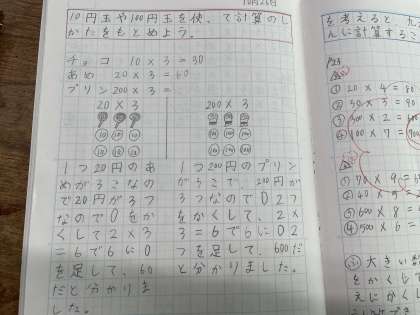 10月26日
10円玉や100円玉を使って計算のし
かたをもとめよう。
チョコ 10×3=30
あめ 20×3=60
プリン200×3=
20×3
200×3
10 10 10
10 10 10
100 100 100
100 100 100
1つ20円のあ
めが3こなの
で20円が3つ
なので0をか
くして2×3
=6で6に0
を足して、60
だと分かりま
した。
1つ200円のプリン
が3こで、200円が
3つなので02つ
をかくして、2×
3=6で6に02
つを足して、600だ
と分かりました。
を考えると、
んに計算するこ
① 20×4=80
② 30×3=90
③ 300×2=600
④ 100×7=700
① 70×9=6
② 40×5=
③ 600×8=
④ 500×6=
大きい
をかくし
えにがくし